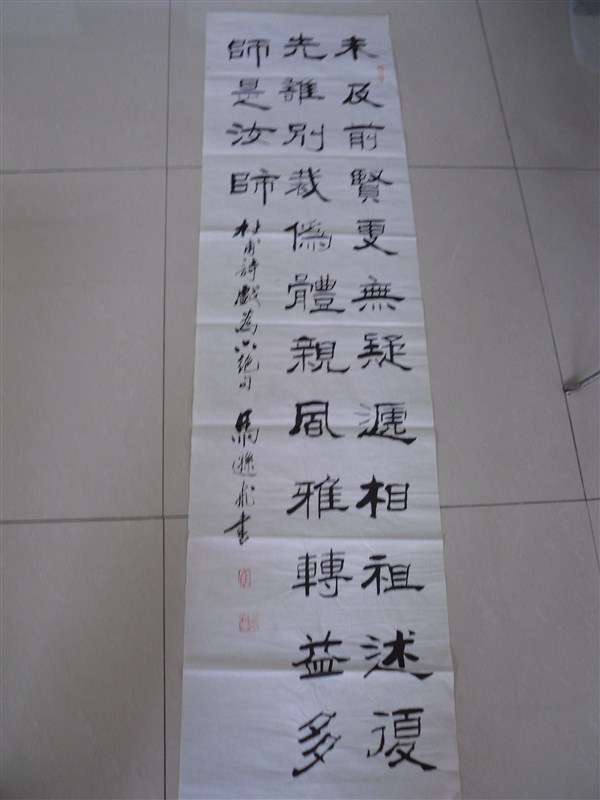 未及前賢更無疑遞相祖述復
先誰別裁偽體親風雅轉益多
師是汝師 杜甫詩戲為六絕句 馬飛書